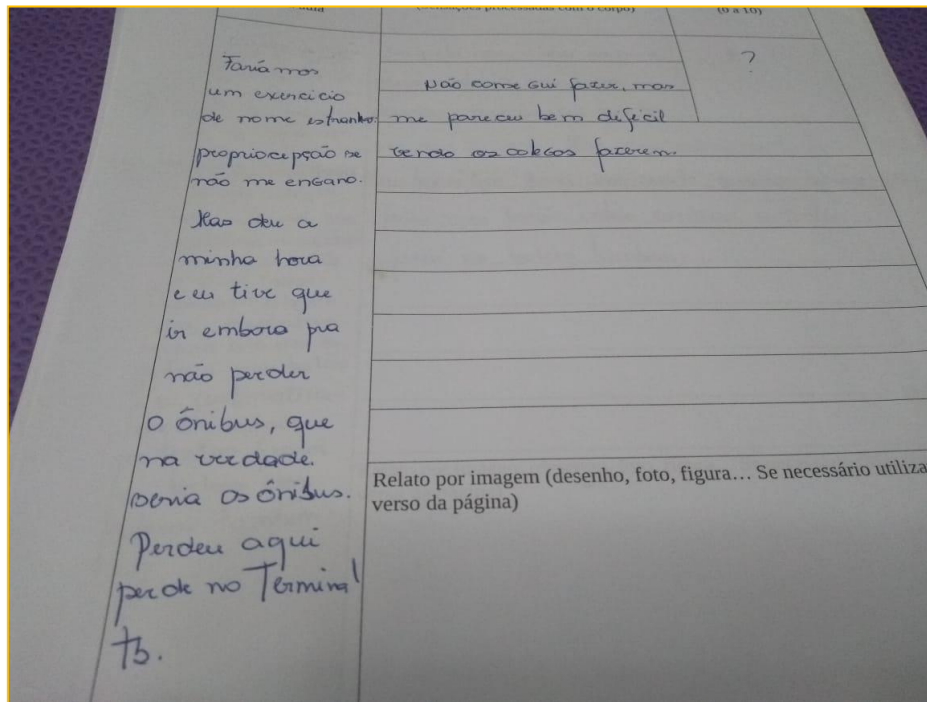 (0 a 10)
Faríamos
um exercício
de nome estranho:
propriocepção se
não me engano.
Mas deu a
minha hora
e eu tive que
ir embora pra
não perder
o ônibus, que
na verdade.
seria os ônibus.
Perdeu aqui
perde no Terminal
tb.
Não consegui fazer, mas
me pareceu bem difícil
vendo os colegas fazerem.
?
Relato por imagem (desenho, foto, figura… Se necessário utiliza
verso da página)